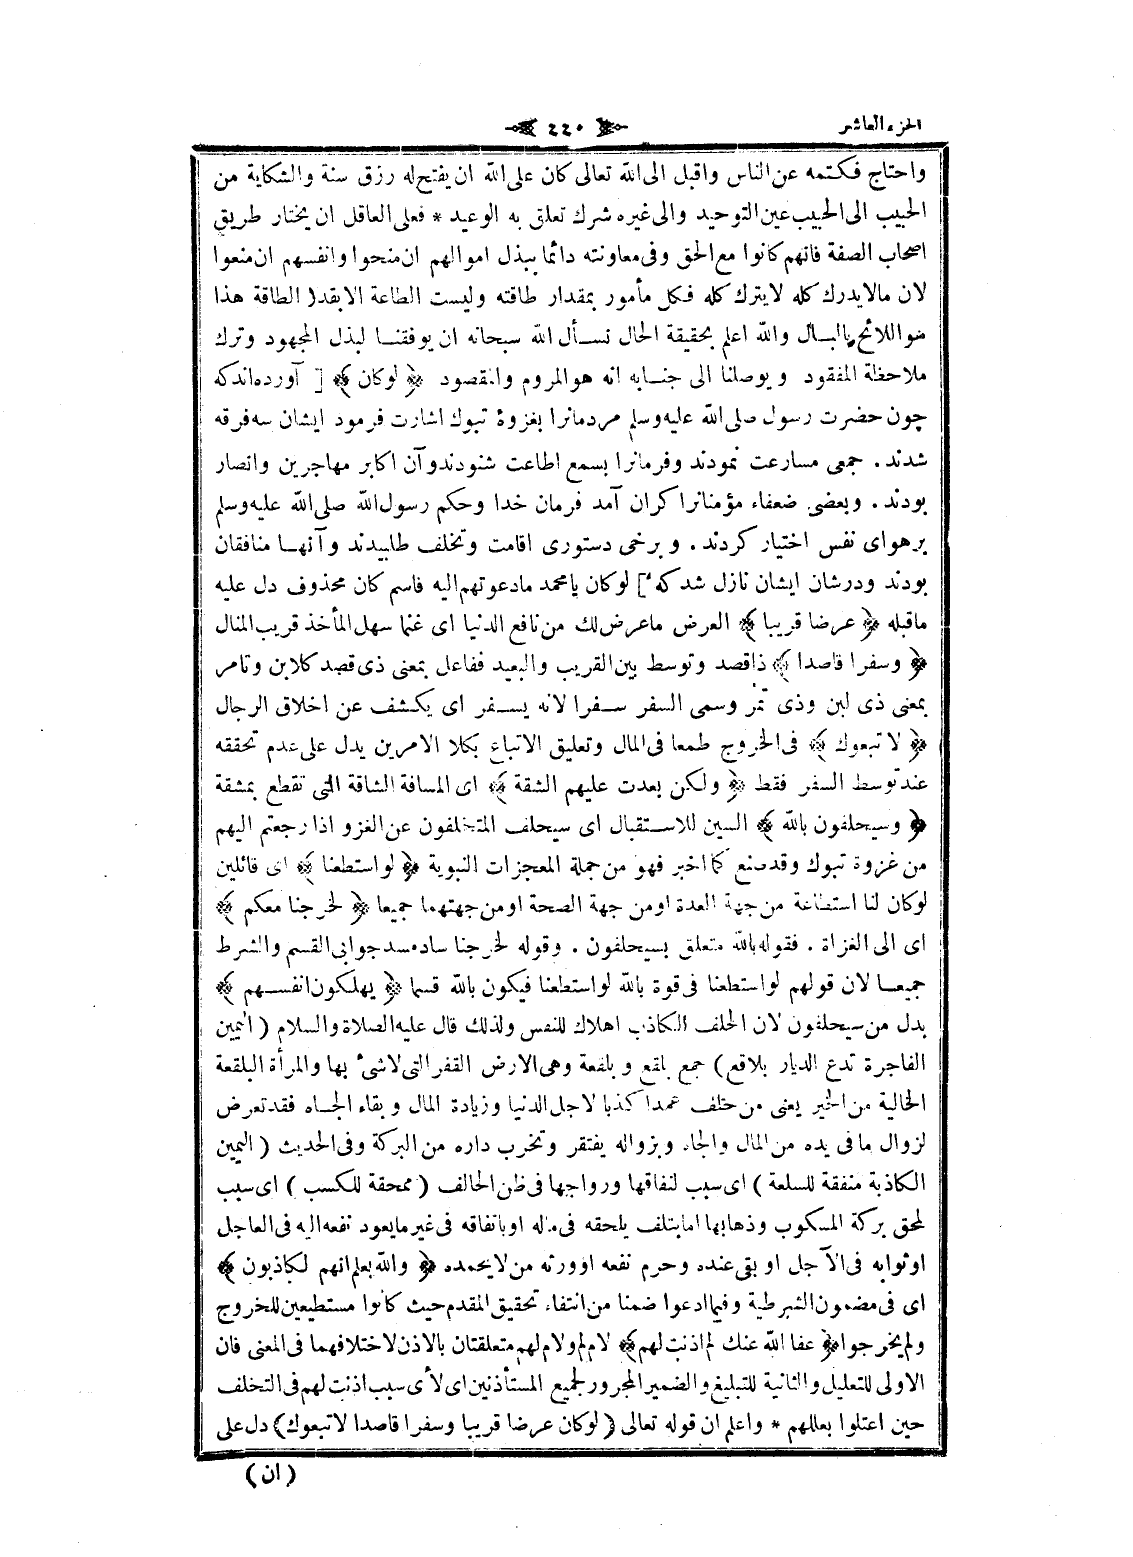 الجزء العاشر
٤٤٠
واحتاج فكتمه عن الناس واقبل الى الله تعالى كان على الله ان يفتح له رزق سنة والشكاية من
الحبيب الى الحبيب عين التوحيد والى غيره شرك تعلق به الوعيد * فعلى العاقل ان يختار طريق
اصحاب الصفة فانهم كانوا مع الحق وفى معاونته دائما ببذل اموالهم ان منحوا وانفسهم ان منعوا
لان مالايدرك كله لايترك كله فكل مأمور بمقدار طاقته وليست الطاعة الا بقدر الطاقة هذا
هو اللائح بالبال والله اعلم بحقيقة الحال نسأل الله سبحانه ان يوفقنا لبذل المجهود وترك
ملاحظة المفقود ويوصلنا الى جنابه انه هو المروم والمقصود ﴿ لوكان ﴾ [ آورده‌اندكه
چون حضرت رسول صلى الله عليه وسلم مردمانرا بغزوهٔ تبوك اشارت فرمود ايشان سه فرقه
شدند . جمعى مسارعت نمودند وفرمانرا بسمع اطاعت شنودند وآن اكابر مهاجرين وانصار
بودند . وبعضى ضعفاء مؤمنانرا كران آمد فرمان خدا وحكم رسول الله صلى الله عليه وسلم
برهواى نفس اختيار كردند . و برخى دستورى اقامت وتخلف طلبيدند وآنها منافقان
بودند ودرشان ايشان نازل شدكه ] لوكان يامحمد مادعوتهم اليه فاسم كان محذوف دل عليه
ماقبله ﴿ عرضا قريبا ﴾ العرض ماعرض لك من نافع الدنيا اى غنما سهل المأخذ قريب المنال
﴿ وسفرا قاصدا ﴾ ذاقصد وتوسط بين القريب والبعيد ففاعل بمعنى ذى قصد كلابن وتامر
بمعنى ذى لبن وذى تمر وسمى السفر سفرا لانه يسفر اى يكشف عن اخلاق الرجال
﴿ لاتبعوك ﴾ فى الخروج طمعا فى المال وتعليق الاتباع بكلا الامرين يدل على عدم تحققه
عند توسط السفر فقط ﴿ ولكن بعدت عليهم الشقة ﴾ اى المسافة الشاقة التى تقطع بمشقة
﴿ وسيحلفون بالله ﴾ السين للاستقبال اى سيحلف المتخلفون عن الغزو اذا رجعتم اليهم
من غزوة تبوك وقد صنع كما اخبر فهو من جملة المعجزات النبوية ﴿ لو استطعنا ﴾ اى قائلين
لوكان لنا استطاعة من جهة العدة او من جهة الصحة او من جهتهما جميعا ﴿ لخرجنا معكم ﴾
اى الى الغزاة . فقوله بالله متعلق بسيحلفون . وقوله لخرجنا ساد مسد جوابى القسم والشرط
جميعا لان قولهم لو استطعنا فى قوة بالله لو استطعنا فيكون بالله قسما ﴿ يهلكون انفسهم ﴾
بدل من سيحلفون لان الحلف الكاذب اهلاك للنفس ولذلك قال عليه الصلاة والسلام ( اليمين
الفاجرة تدع الديار بلاقع ) جمع بلقع و بلقعة وهى الارض القفر التى لاشئ بها والمرأة البلقعة
الخالية من الخير يعنى من حلف عمدا كذبا لاجل الدنيا وزيادة المال و بقاء الجاه فقد تعرض
لزوال ما فى يده من المال والجاه وبزواله يفتقر وتخرب داره من البركة وفى الحديث ( اليمين
الكاذبة منفقة للسلعة ) اى سبب لنفاقها ورواجها فى ظن الحالف ( ممحقة للكسب ) اى سبب
لمحق بركة المكسوب وذهابها اما بتلف يلحقه فى ماله او بانفاقه فى غير مايعود نفعه اليه فى العاجل
او ثوابه فى الآجل او بقى عنده وحرم نفعه او ورثه من لايحمده ﴿ والله يعلم انهم لكاذبون ﴾
اى فى مضمون الشرطية وفيما ادعوا ضمنا من انتفاء تحقيق المقدم حيث كانوا مستطيعين للخروج
ولم يخرجوا ﴿ عفا الله عنك لم اذنت لهم ﴾ لام لم ولام لهم متعلقتان بالاذن لاختلافهما فى المعنى فان
الاولى للتعليل والثانية للتبليغ والضمير المجرور لجميع المستأذنين اى لأى سبب اذنت لهم فى التخلف
حين اعتلوا بعللهم * واعلم ان قوله تعالى ( لوكان عرضا قريبا وسفرا قاصدا لاتبعوك ) دل على
( ان )